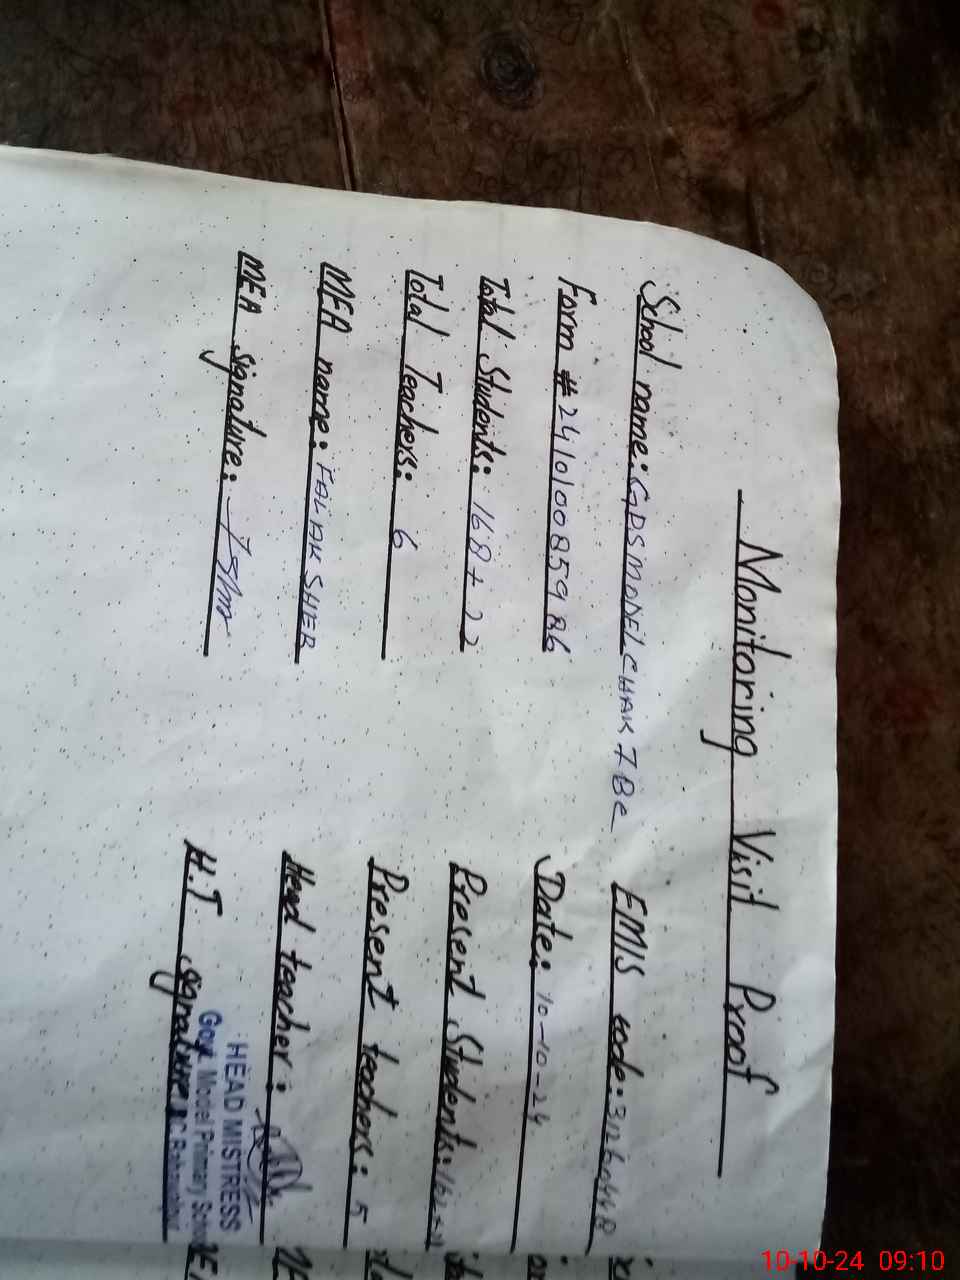 Monitoring Visit Proof
School name: GPS MODEL CHAK 7 BC EMIS code: 31260448
Form # 241010085986 Date: 10-10-24
Total Students: 168+22 Present Students:
Total Teachers: 6 Present teachers: 5
MEA name: FALAK SHER Head teacher:
MEA signature: H.T signature:
HEAD MISTRESS
Govt. Model Primary School
BC Bahawalpur
10-10-24 09:10